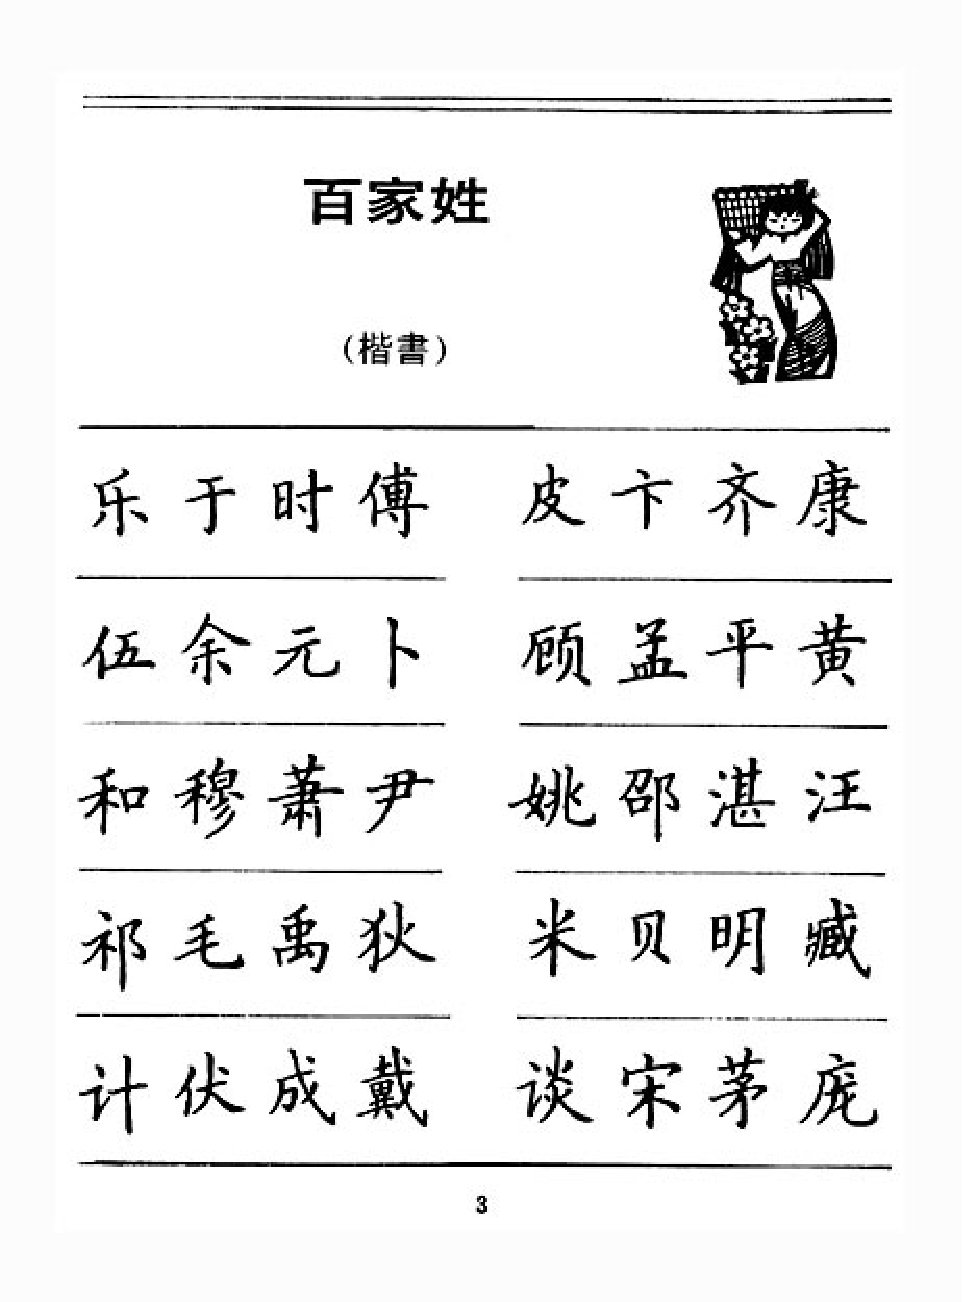 百家姓
（楷書）
乐于时傅 皮卞齐康
伍余元卜 顾孟平黄
和穆萧尹 姚邵湛汪
祁毛禹狄 米贝明臧
计伏成戴 谈宋茅庞
3